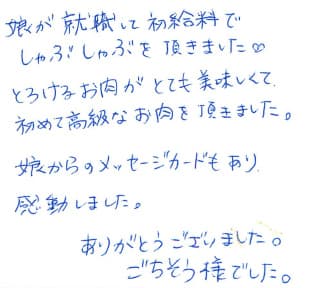 娘が就職して初給料で
しゃぶしゃぶを頂きました♡
とろけるお肉がとても美味しくて
初めて高級なお肉を頂きました。
娘からのメッセージカードもあり
感動しました。
ありがとうございました。
ごちそう様でした。